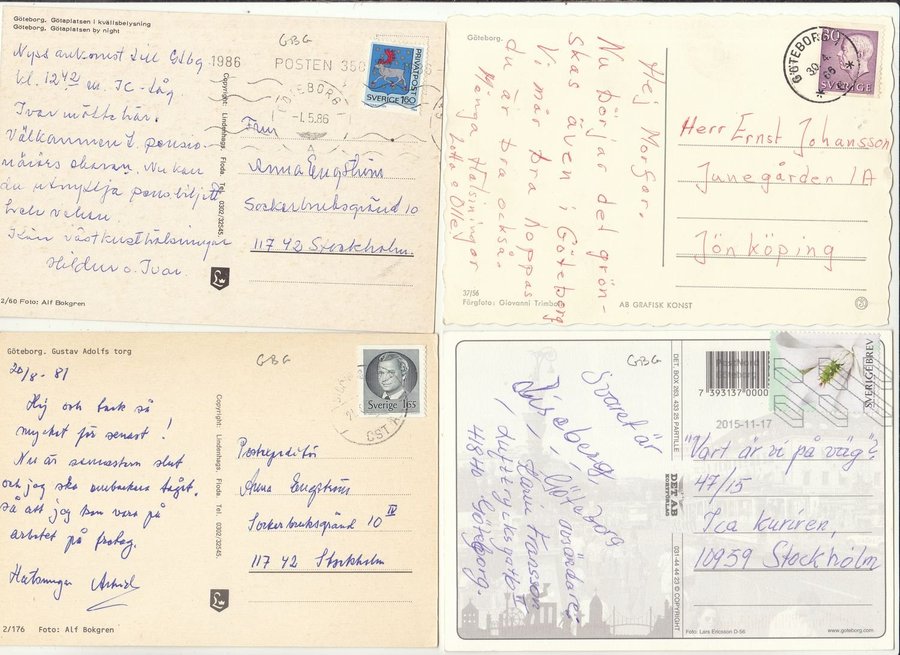 Göteborg. Götaplatsen i kvällsbelysning
Göteborg. Götaplatsen by night
GBG
1986
POSTEN 350
GÖTEBORG
-1.5.86
PRIVATPOST
SVERIGE 160
Nyss ankomst till Gtbg
kl. 12.42 m. IC-tåg
Ivar mötte här.
Välkommen
Nu kan
du utnyttja
hela veckan.
västkusthälsningar
Hildur o. Ivar.
Copyright: Lindenhags. Floda Tel. 0302/32545.
Fru
Anna Engström
Sockerbruksgränd 10
117 42 Stockholm.
2/60 Foto: Alf Bokgren
Göteborg.
GÖTEBORG
30.4.
66
30
SVERIGE
Hej Morfar.
Nu börjar det grön-
skas även i Göteborg
Vi mår bra hoppas
du är bra också.
Många hälsningar
Lotta o Olle
Herr Ernst Johansson
Junegården 1A
Jönköping
37/56
Färgfoto: Giovanni Trimboli
AB GRAFISK KONST
Göteborg. Gustav Adolfs torg
GBG
Sverige 165
20/8 - 81
Hej och tack så
mycket för senast!
Nu är semestern slut
och jag ska ombesörja tåget,
så att jag kan vara på
arbetet på fredag.
Hälsningar Astrid
Copyright: Lindenhags. Floda. Tel. 0302/32545.
Postexpeditör
Anna Engström
Sockerbruksgränd 10 IV
117 42 Stockholm
2/176 Foto: Alf Bokgren
GBG
DET. BOX 263, 433 25 PARTILLE
7 393137 0000
2015-11-17
SVERIGE BREV
Svaret är
Liseberg,
Karin Fransson
418 40 Göteborg.
DET AB
KORTFÖRLAG
031-44 44 23 © COPYRIGHT
"Vart är vi på väg"?
47/15
Ica kuriren,
10959 Stockholm
Foto: Lars Ericsson D-56
www.goteborg.com